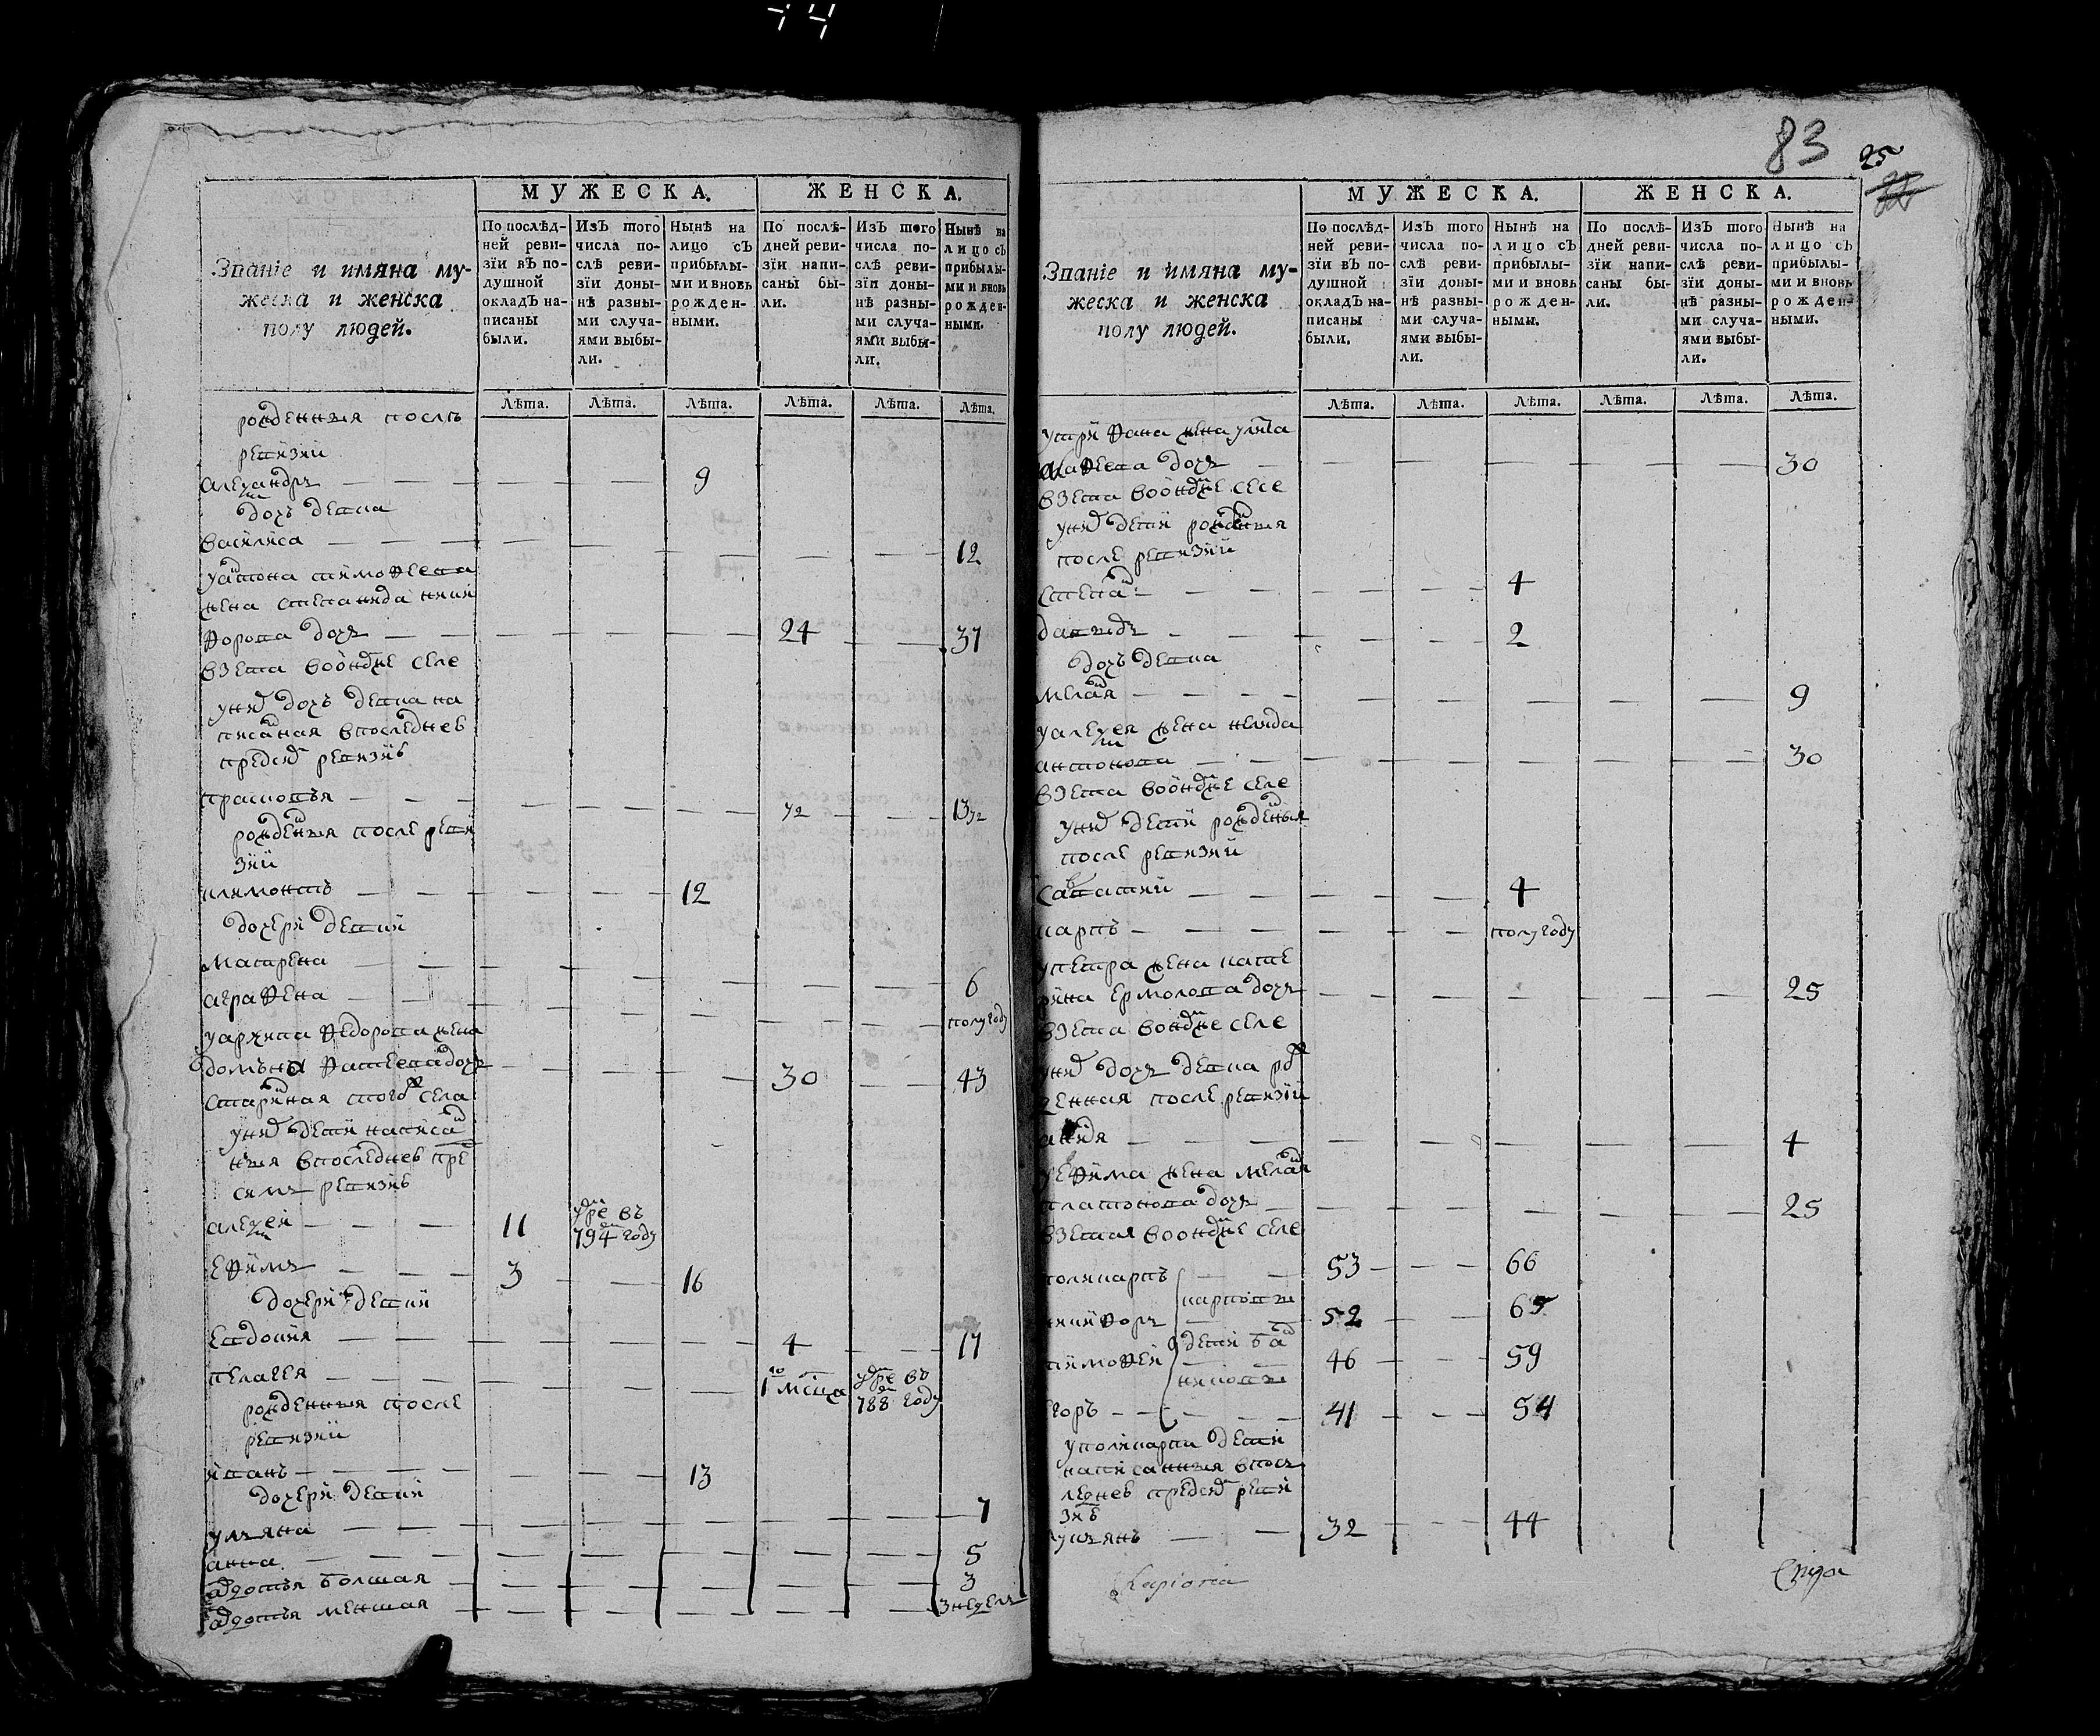 74
МУЖЕСКА. ЖЕНСКА.
Званіе и имяна мужеска и женска полу людей.
По послѣд-
ней реви-
зїи вЪ по-
душной
окладЪ на-
писаны
были.
ИзЪ того
числа по-
слѣ реви-
зїи доны-
нѣ разны-
ми случа-
ями выбы-
ли.
Нынѣ на
лицо сЪ
прибылы-
ми и вновь
рожден-
ными.
По послѣ-
дней реви-
зїи напи-
саны бы-
ли.
ИзЪ того
числа по-
слѣ реви-
зїи доны-
нѣ разны-
ми случа-
ями выбы-
ли.
Нынѣ на
лицо сЪ
прибылы-
ми и вновь
рожден-
ными.
Лѣта. Лѣта. Лѣта. Лѣта. Лѣта. Лѣта.
рожденныя послѣ
ревизии
александръ 9
дочь девка
василиса 12
уантона тимофеева
жена степанида ники
форова дочь 24 37
взета воонаже селе
уних дочь девка на
писаная впоследнеѣ
предсим ревизиѣ
прасковья 1/2 13 1/2
рожденыя после реви
зии
филимонтъ 12
дочери девки
матрена 6
аграфена полугоду
уархипа федорова жена
домъна фатеева дочь 30 43
стариная тогож села
уних дети написан
ныя впоследнеѣ пре
симъ ревизиѣ
алексей 11 умре въ
794 году
ефимъ 3 16
дочери девки
евдокия 4 17
пелагея 1 мсца умре въ
788 году
рожденныя после
ревизии
иванъ 13
дочери девки
ульяна 7
анна 5
авдотья болшая 3
авдотья меншая 3 недели
83
25
МУЖЕСКА. ЖЕНСКА.
Званіе и имяна мужеска и женска полу людей.
По послѣд-
ней реви-
зїи вЪ по-
душной
окладЪ на-
писаны
были.
ИзЪ того
числа по-
слѣ реви-
зїи доны-
нѣ разны-
ми случа-
ями выбы-
ли.
Нынѣ на
лицо сЪ
прибылы-
ми и вновь
рожден-
ными.
По послѣ-
дней реви-
зїи напи-
саны бы-
ли.
ИзЪ того
числа по-
слѣ реви-
зїи доны-
нѣ разны-
ми случа-
ями выбы-
ли.
Нынѣ на
лицо сЪ
прибылы-
ми и вновь
рожден-
ными.
Лѣта. Лѣта. Лѣта. Лѣта. Лѣта. Лѣта.
утрифана жена улита
дочь 30
взета воонаже селе
уних дети рожденыя
после ревизии
степан 4
давыдъ 2
дочь девка
меланя 9
уалексея жена
антонова 30
взета воонаже селе
уних дети рожденыя
после ревизии
савватий 4
карпъ полугоду
упетра жена кате
рина ермолова дочь 25
взета вонаже селе
уних дочь девка рож
денная после ревизии
4
уефима жена меланя
платонова дочь 25
взетая воонаже селе
поликарпъ 53 66
карповы
никифоръ 52 65
тимофей дети 46 59
егоръ 41 54
уполикарпа дети
написанныя впосъ
леднеѣ предсим реви
зиѣ
лукъянъ 32 44